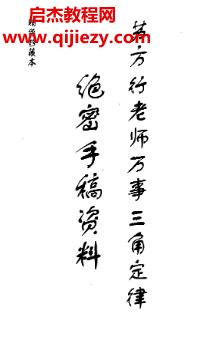 启杰教程网
www.qijiezy.com
苗方行老师万事三角定律
绝密手稿资料